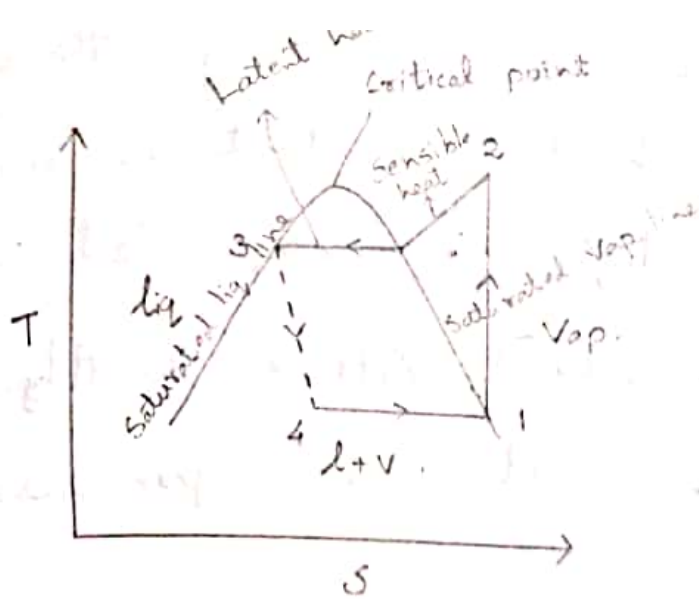 Latent
Critical point
Sensible
heat
2
3
liq
Saturated liq line
Saturated vap line
T
Vap.
4
1
l+v.
S